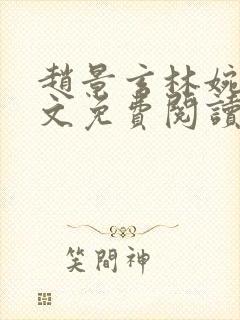 趙景言林婉
文免費閱讀
笑間神